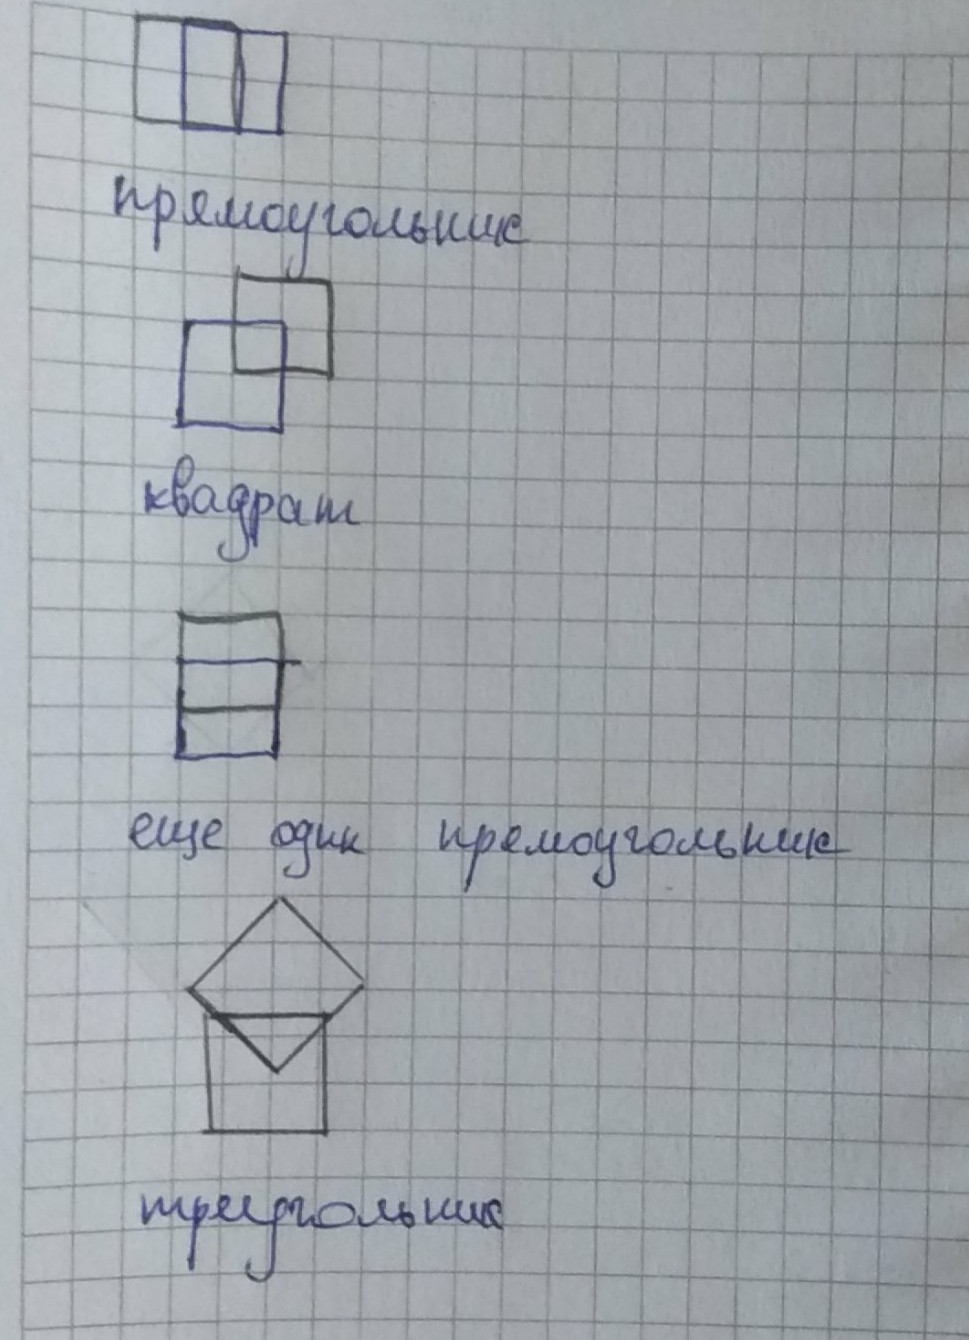 прямоугольник
квадрат
еще один прямоугольник
треугольник